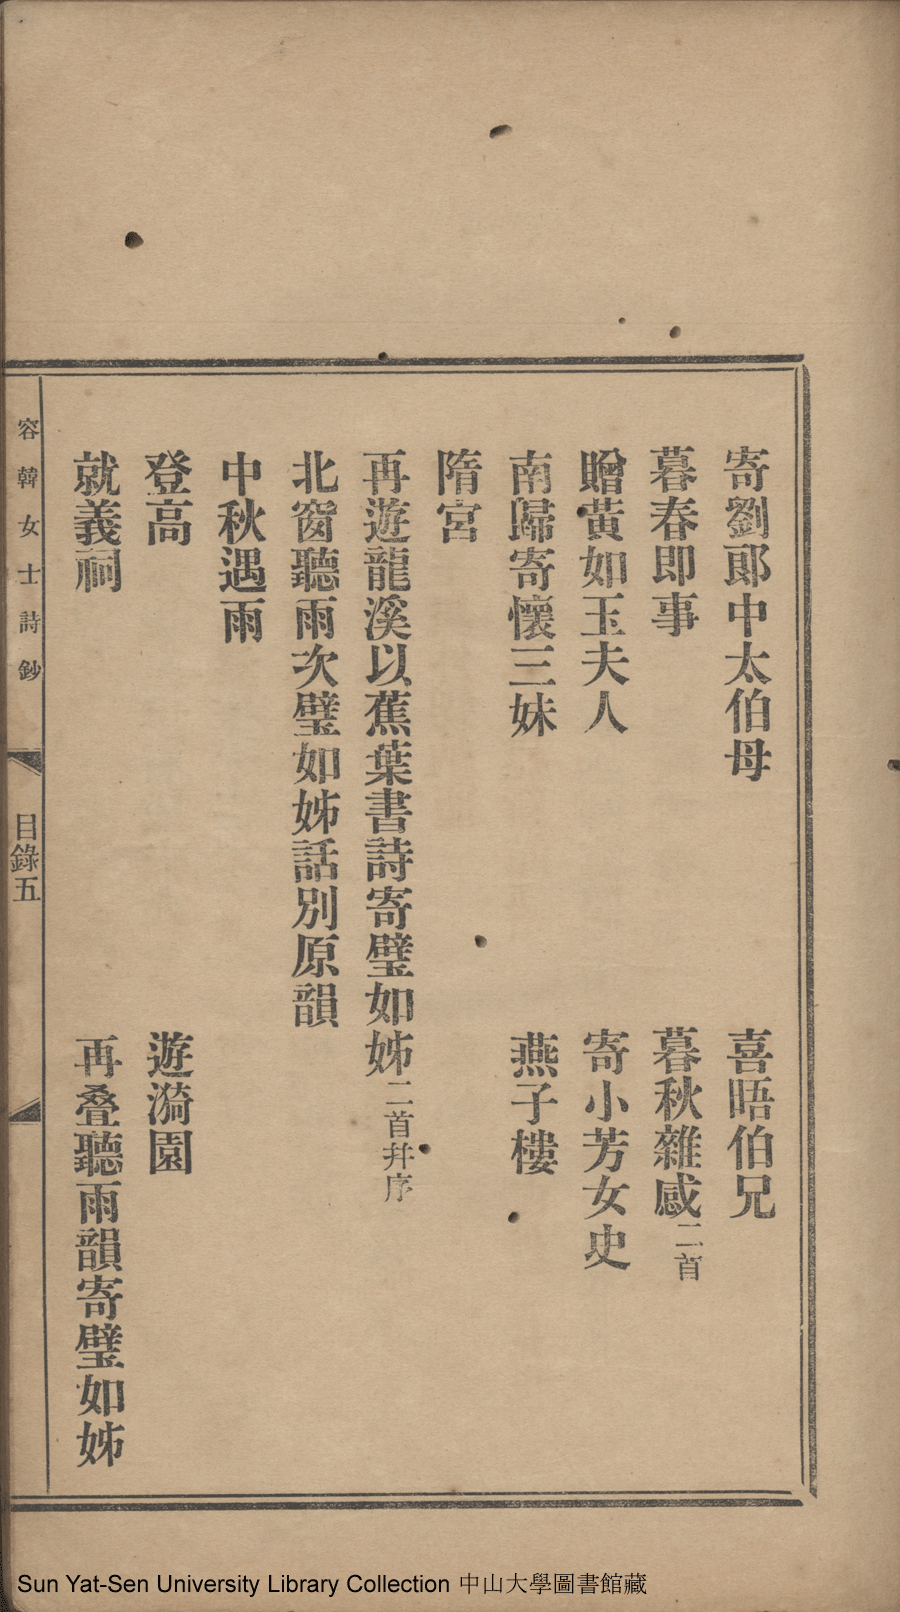 寄劉郎中太伯母　喜晤伯兄
暮春即事　暮秋雜感二首
贈黃如玉夫人　寄小芳女史
南歸寄懷三妹　燕子樓
隋宮
再遊龍溪以蕉葉書詩寄璧如姊二首并序
北窗聽雨次璧如姊話別原韻
中秋遇雨
登高　遊漪園
就義祠　再叠聽雨韻寄璧如姊
容韓女士詩鈔　目錄五
Sun Yat-Sen University Library Collection 中山大學圖書館藏